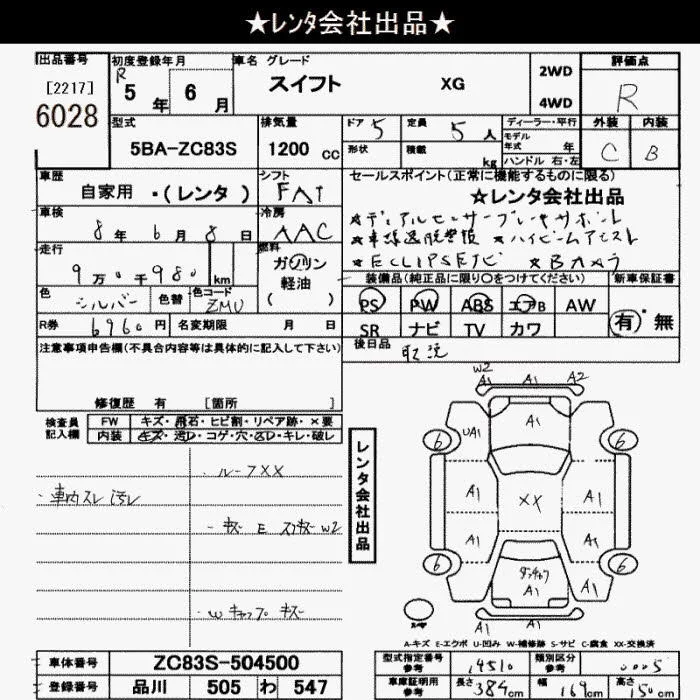 ★レンタ会社出品★
出品番号 初度登録年月 車名 グレード 評価点
[2217] R 5年 6月 スイフト XG 2WD 4WD R
6028
型式 排気量 ドア 5 定員 5人 ディーラー・平行 外装 内装
5BA-ZC83S 1200cc 形状 積載 kg モデル年式 年 C B
ハンドル 右・左
車歴 シフト セールスポイント(正常に機能するものに限る)
自家用 ・(レンタ) FAT ★レンタ会社出品
車検 冷房 ★デュアルセンサーブレーキサポート
8年 6月 8日 AAC ★車線逸脱警報 ★ハイビームアシスト
走行 燃料 ★ECLIPSEナビ ★Bカメラ
9万0千980 km ガソリン
軽油
( )
装備品(純正品に限り○をつけてください) 新車保証書
色 色替 色コード
シルバー ZMU
PS PW ABS エアB AW 有・無
R券 6960円 名変期限 月 日 SR ナビ TV カワ
注意事項申告欄(不具合内容等は具体的に記入して下さい) 後日品 取説
修復歴 有 [箇所
検査員記入欄 FW キズ・飛石・ヒビ割・リペア跡・×要
内装 キズ・汚レ・コゲ・穴・スレ・キレ・破レ
・ルーフXX
・車内スレ汚レ
W2 A1 A1 A2
A1
UA1
6 6
A1 XX A1
A1 A1
6 6
A1
A1
レンタ会社出品
A-キズ E-エクボ U-凹み W-補修跡 S-サビ C-腐食 XX-交換済
車体番号 ZC83S-504500 型式指定番号参考 14510 類別区分参考 0005
登録番号 品川 505 わ 547 車庫証明用参考 長さ 384cm 幅 169cm 高さ 150cm